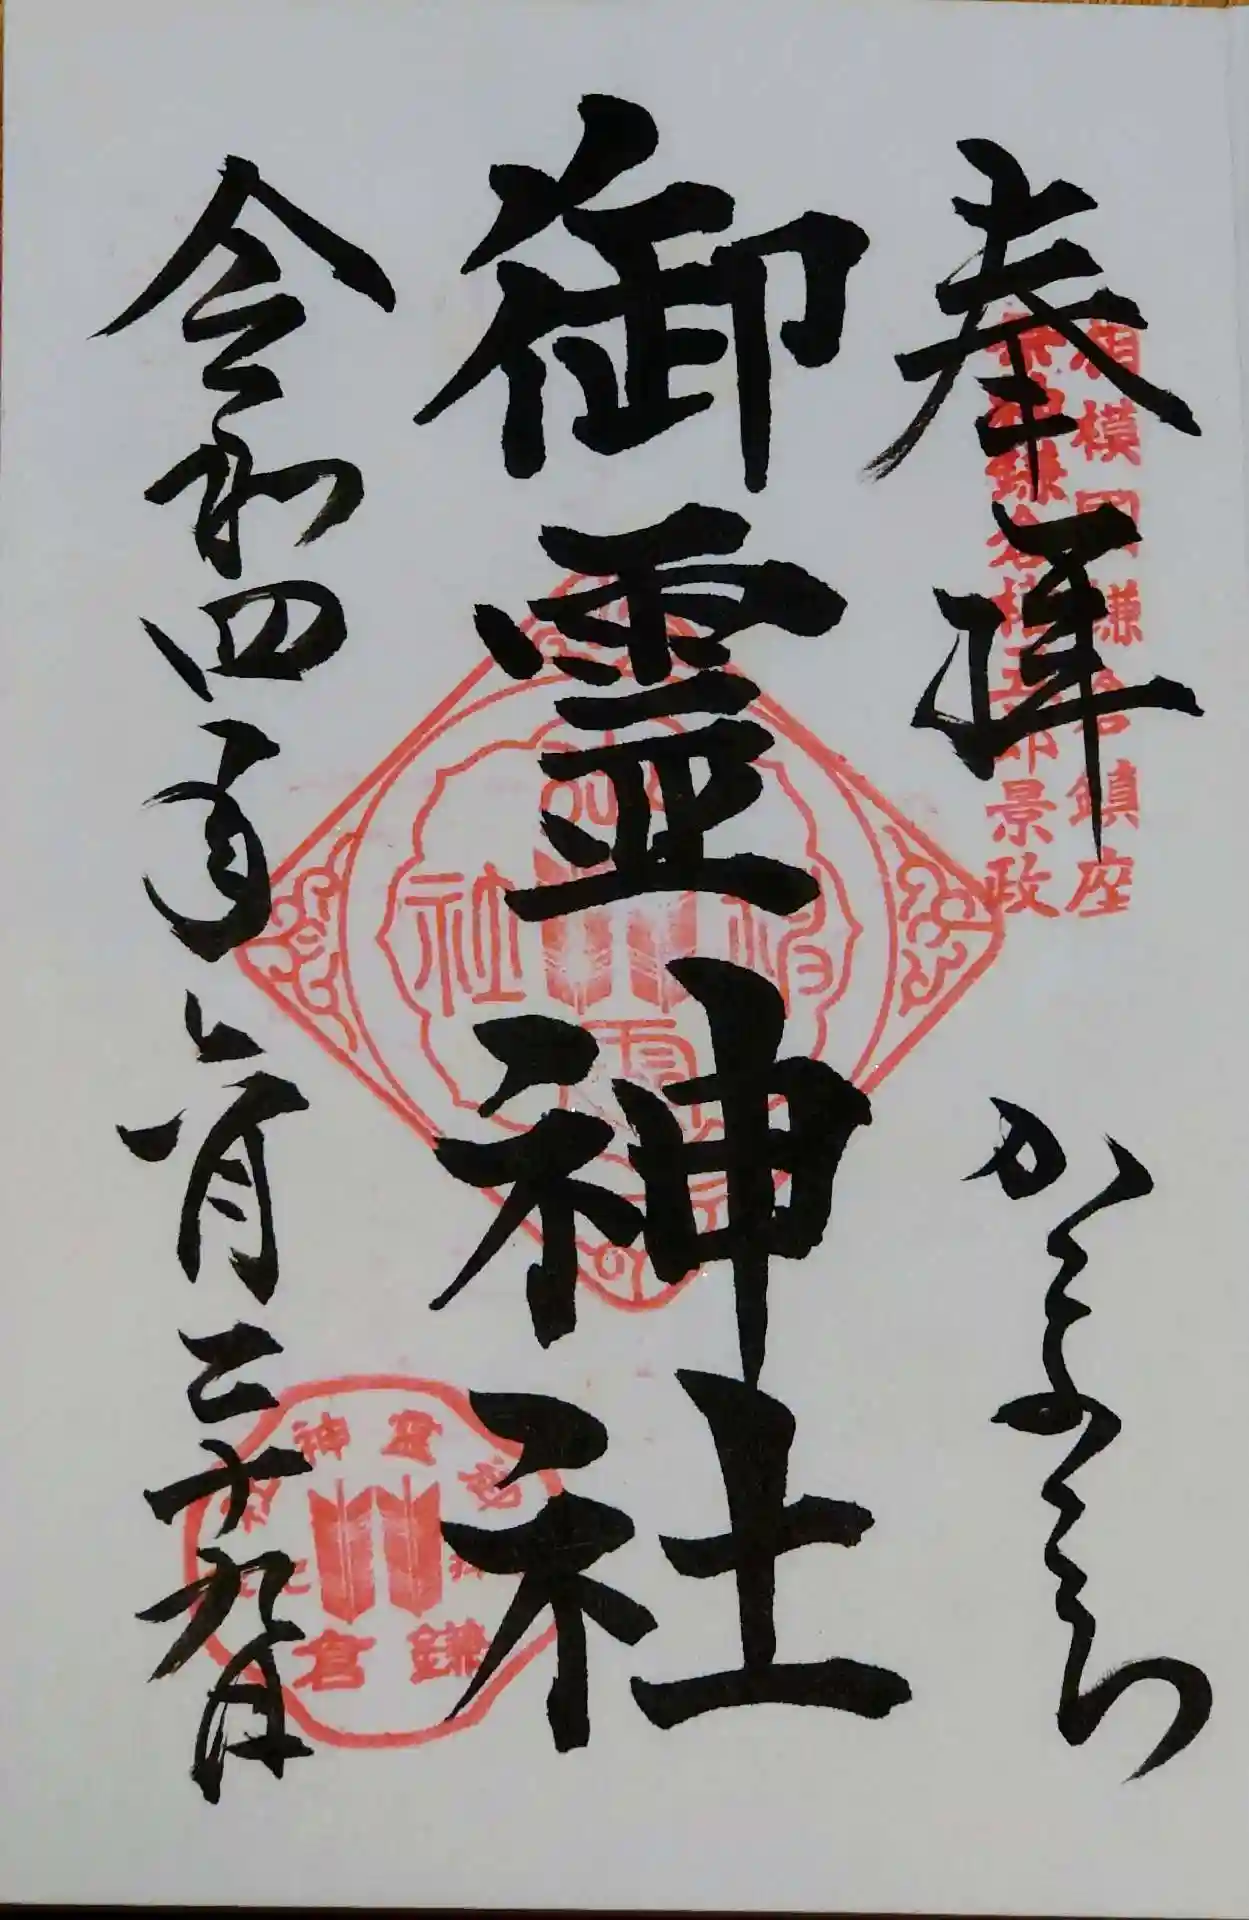 奉拝
かまくら
相模国鎌倉鎮座
祭神鎌倉権五郎景政
御霊神社
令和四年六月二十九日
御霊神社
御霊神
鎌倉